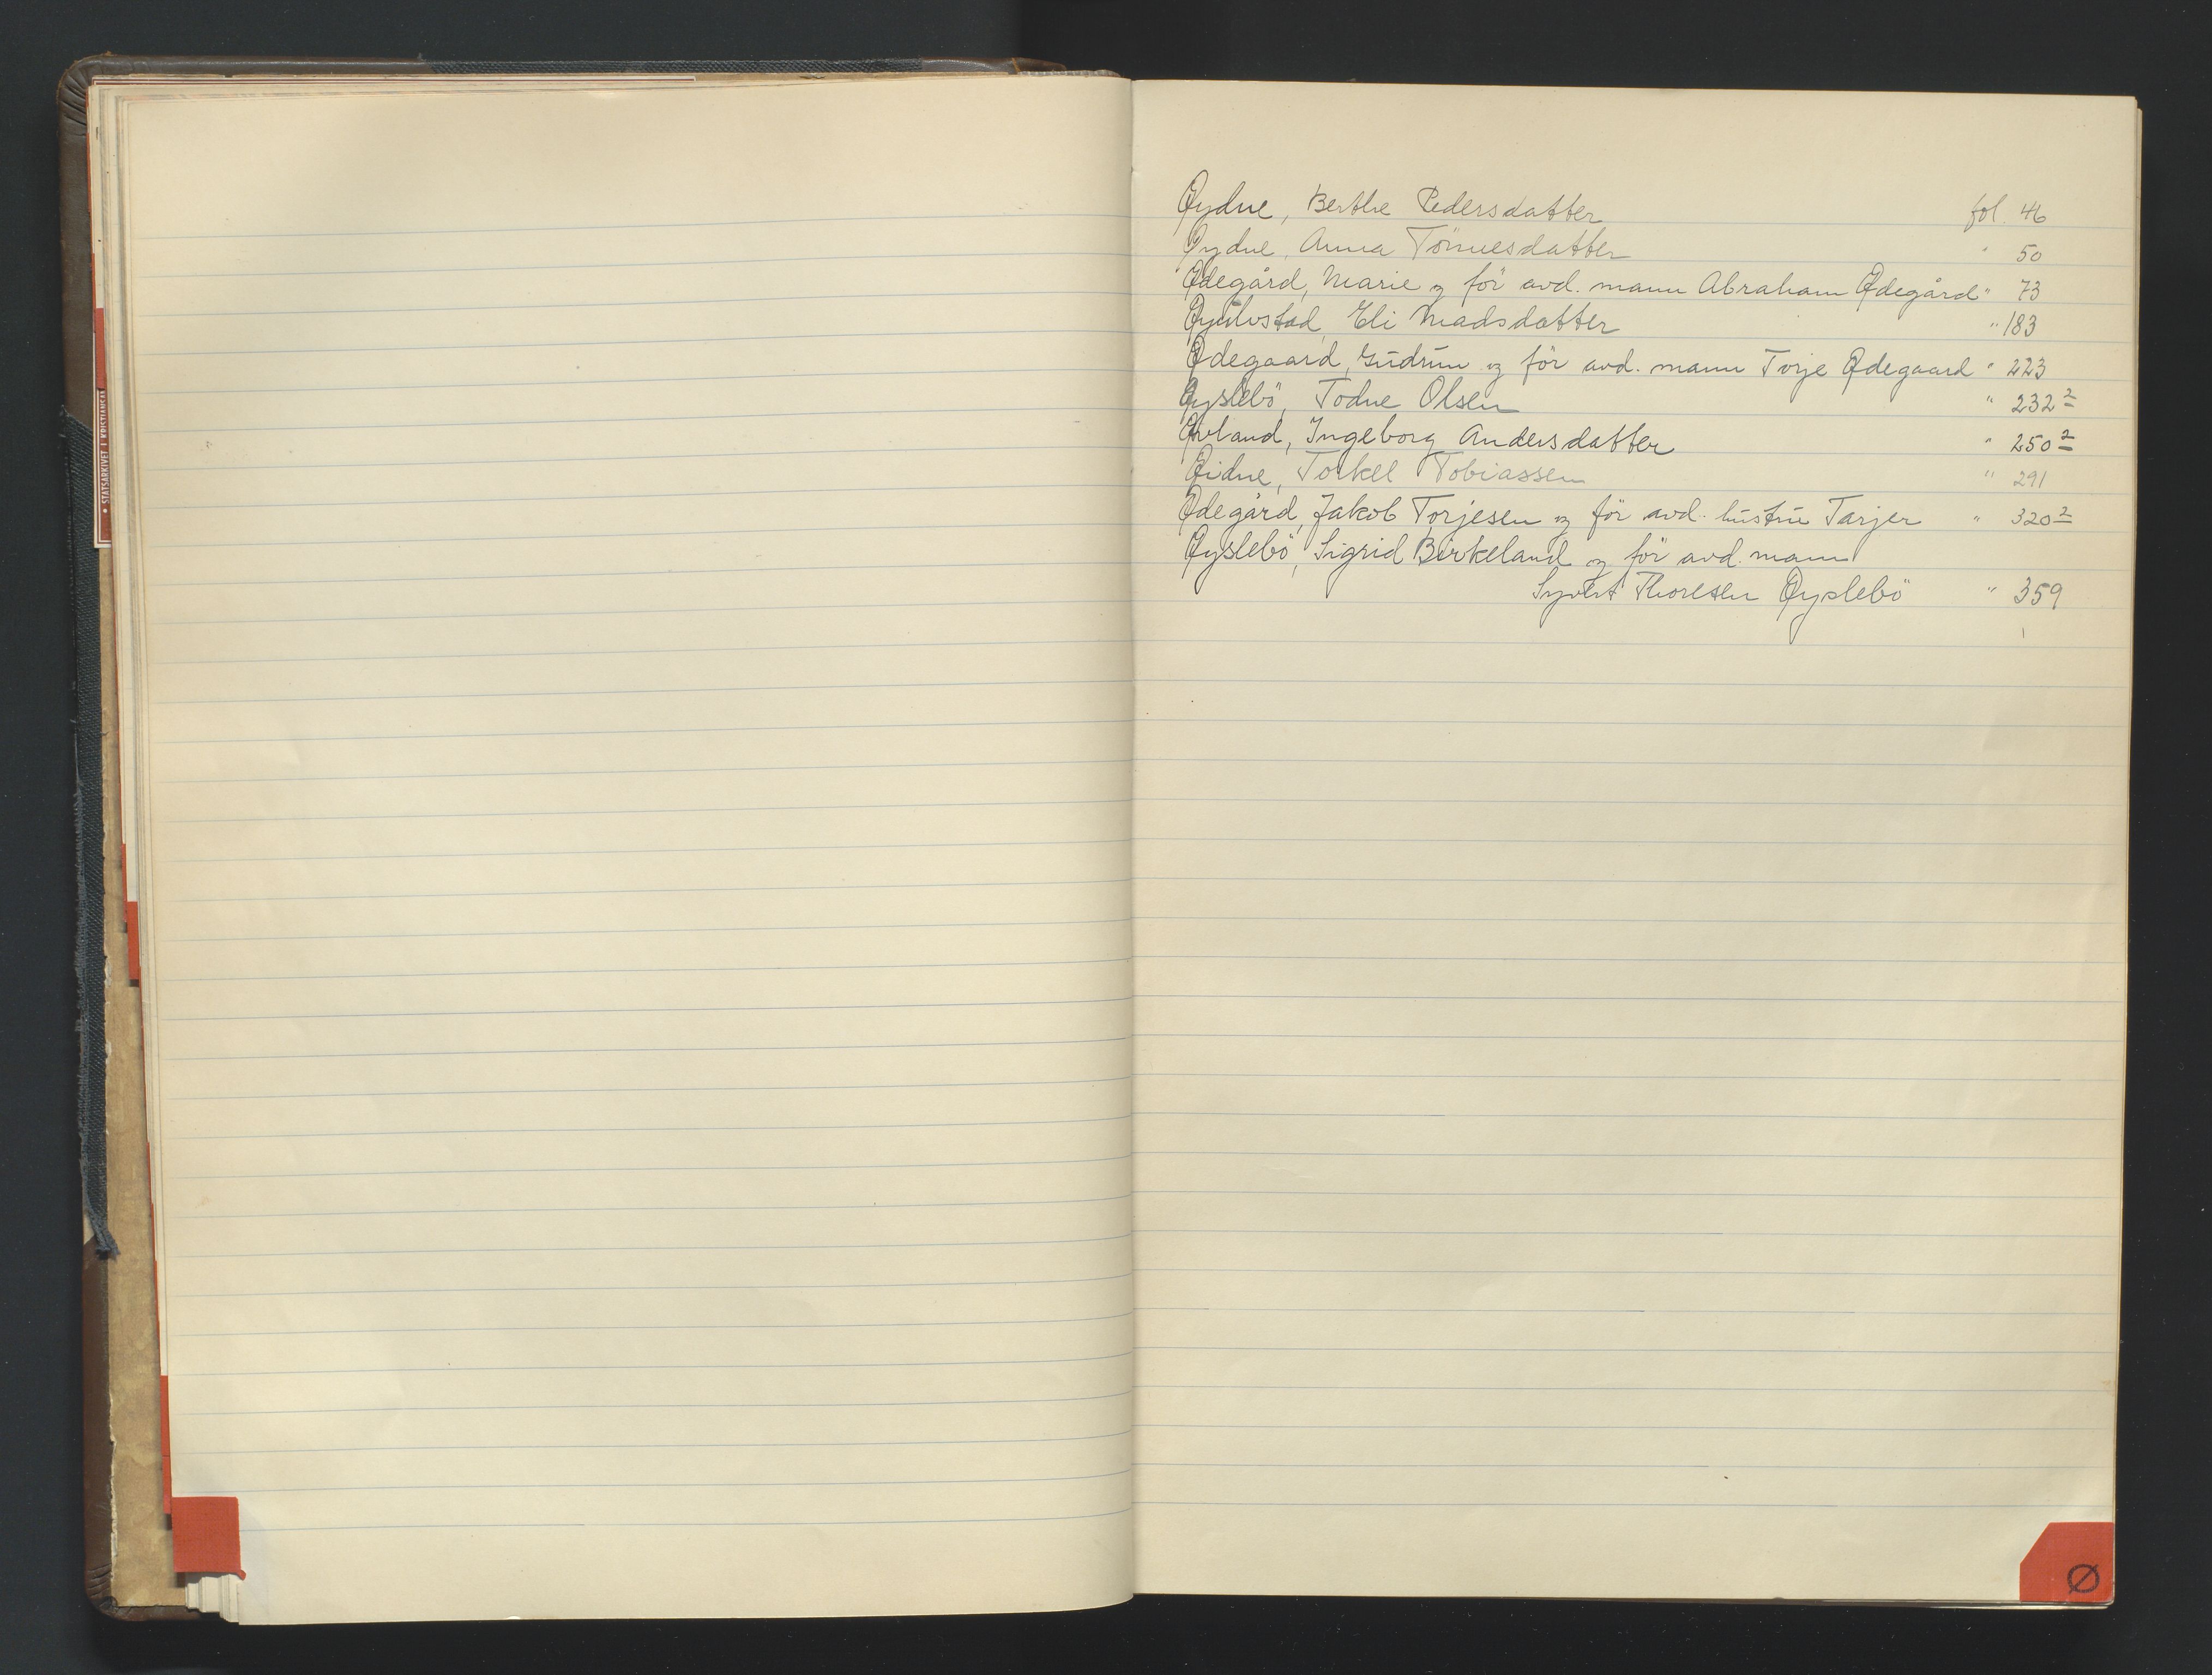 STATSARKIVET I KRISTIANSAN
Øydne, Berthe Pedersdatter fol. 46
Øydne, Anna Tönnesdatter " 50
Ødegård, Marie og för avd. mann Abraham Ødegård " 73
Eli Madsdatter " 183
Ødegaard, Gudrun og för avd. mann Torje Ødegaard " 223
Øyslebö, Todne Olsen " 232 2
Øvland, Ingeborg Andersdatter " 250 2
Øidne, Torkel Tobiassen " 291
Ødegård, Jakob Torjesen og för avd. hustru Tarjer " 320 2
Øyslebö, Sigrid Birkeland og för avd. mann
Syvert Thoresen Øyslebö " 359
Ø